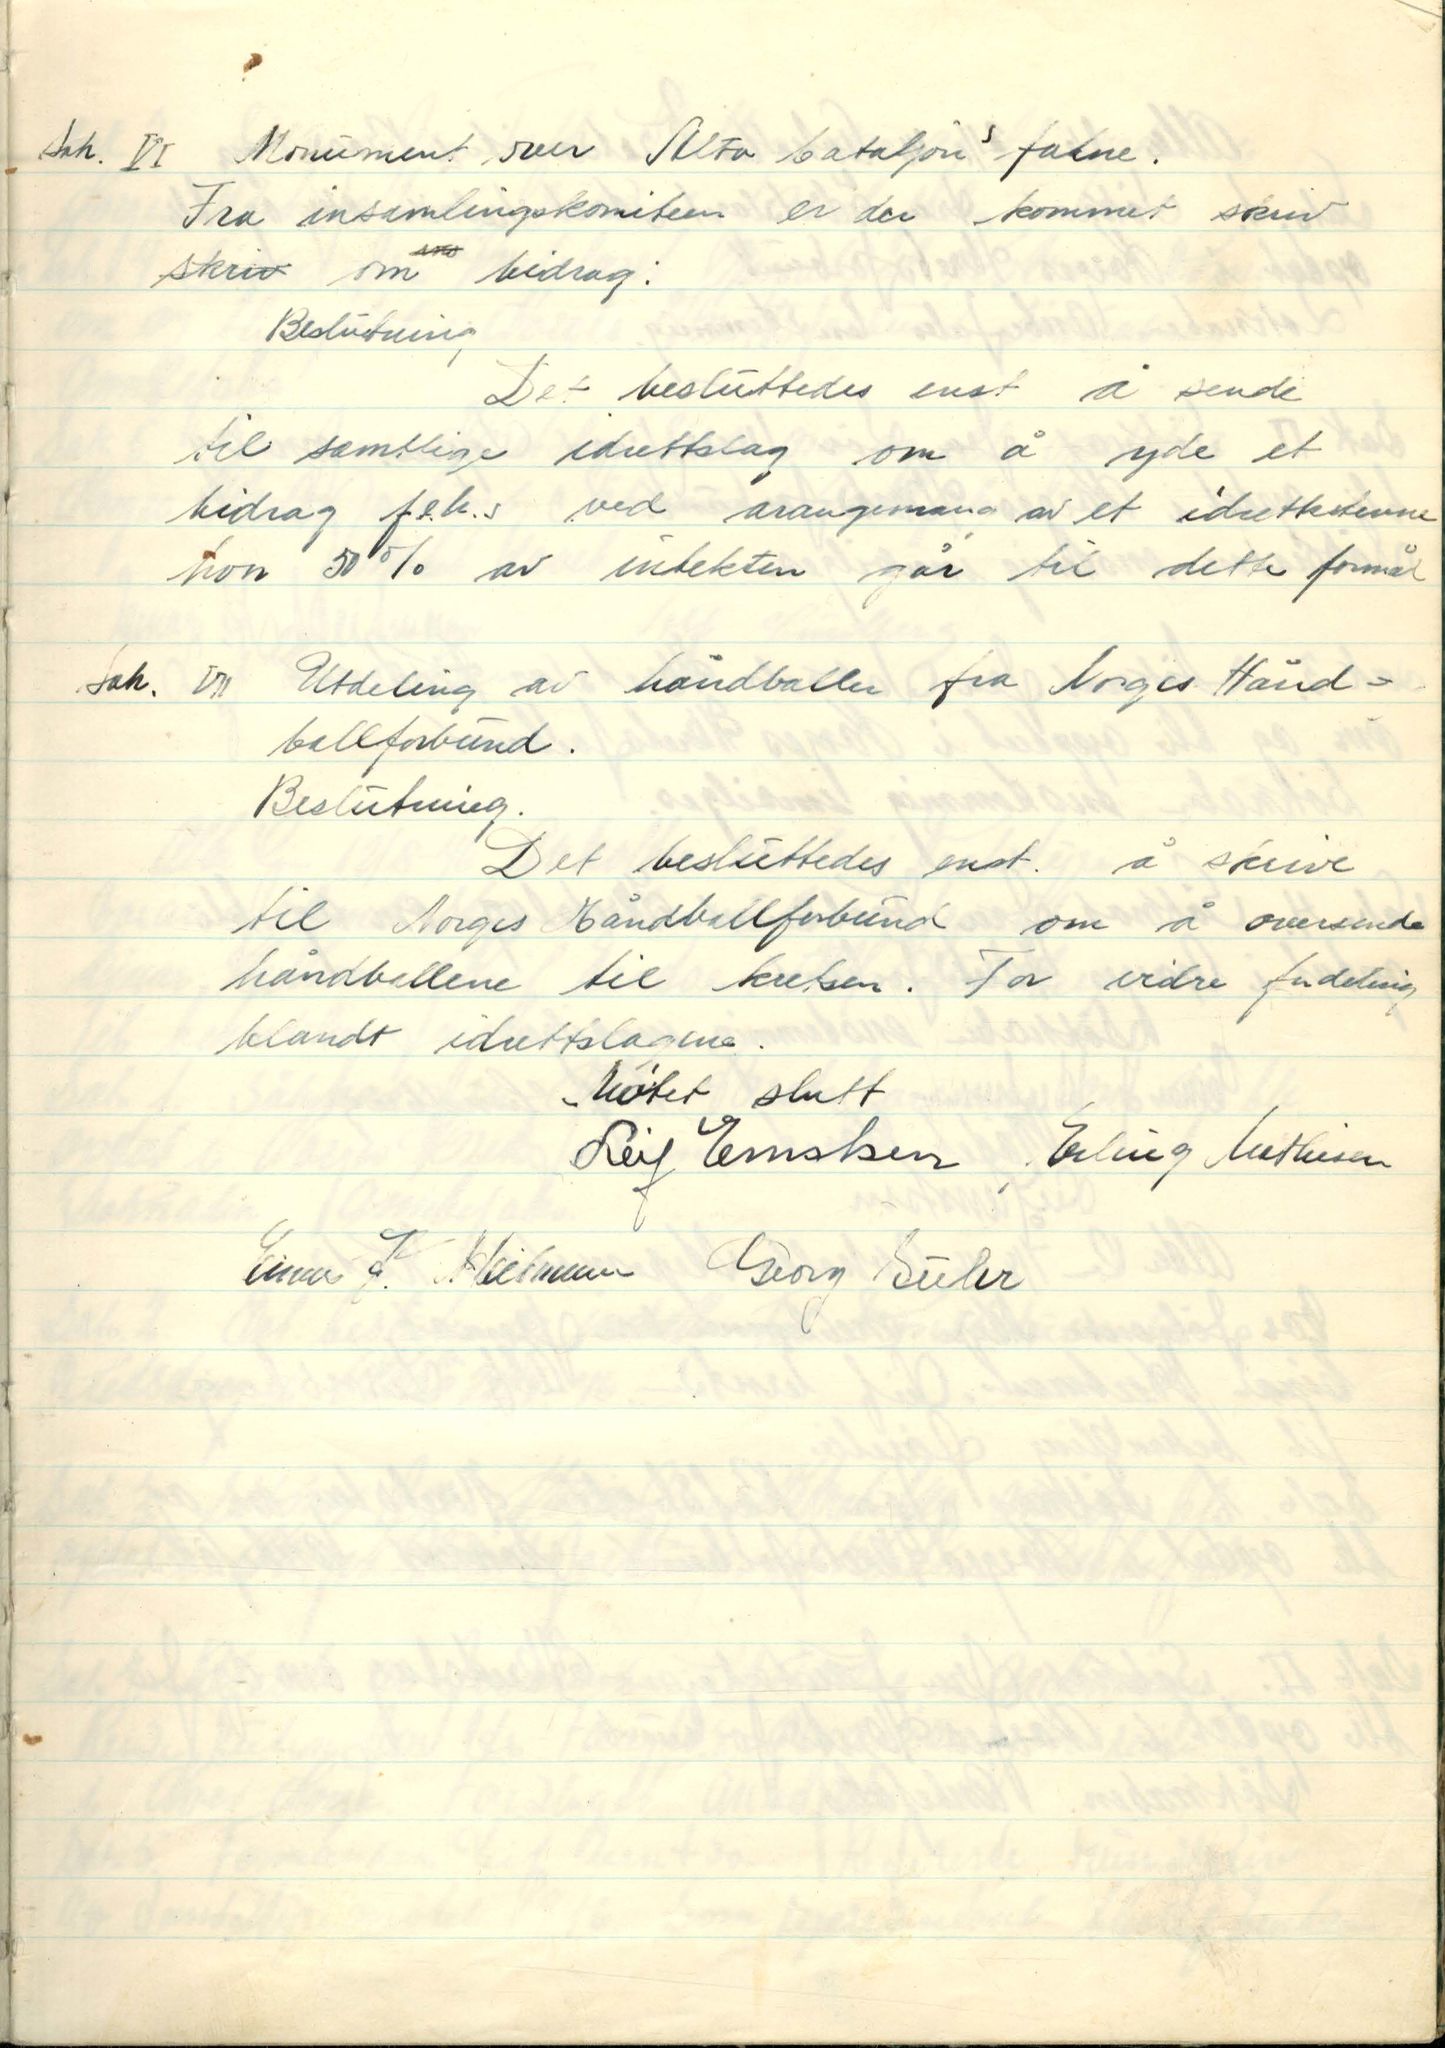 Sak. VI Monument over Alta bataljons falne.
Fra insamlingskomiteen er der kommet skriv
skriv om bidrag.
Beslutning
Det besluttedes enst å sende
til samtlige idrettslag om å yde et
bidrag f.eks ved arangemang av et idrettstevne
hvor 50% av intekten går til dette formål
Sak. VII Utdeling av håndballer fra Norges Hånd=
ballforbund.
Beslutning.
Det besluttedes enst. å skrive
til Norges Håndballforbund om å oversende
håndballene til kretsen. For vidre fudeling
blandt idrettslagene.
Møtet slutt
Leif Ernstsen Erling Mathisen
Einar Georg